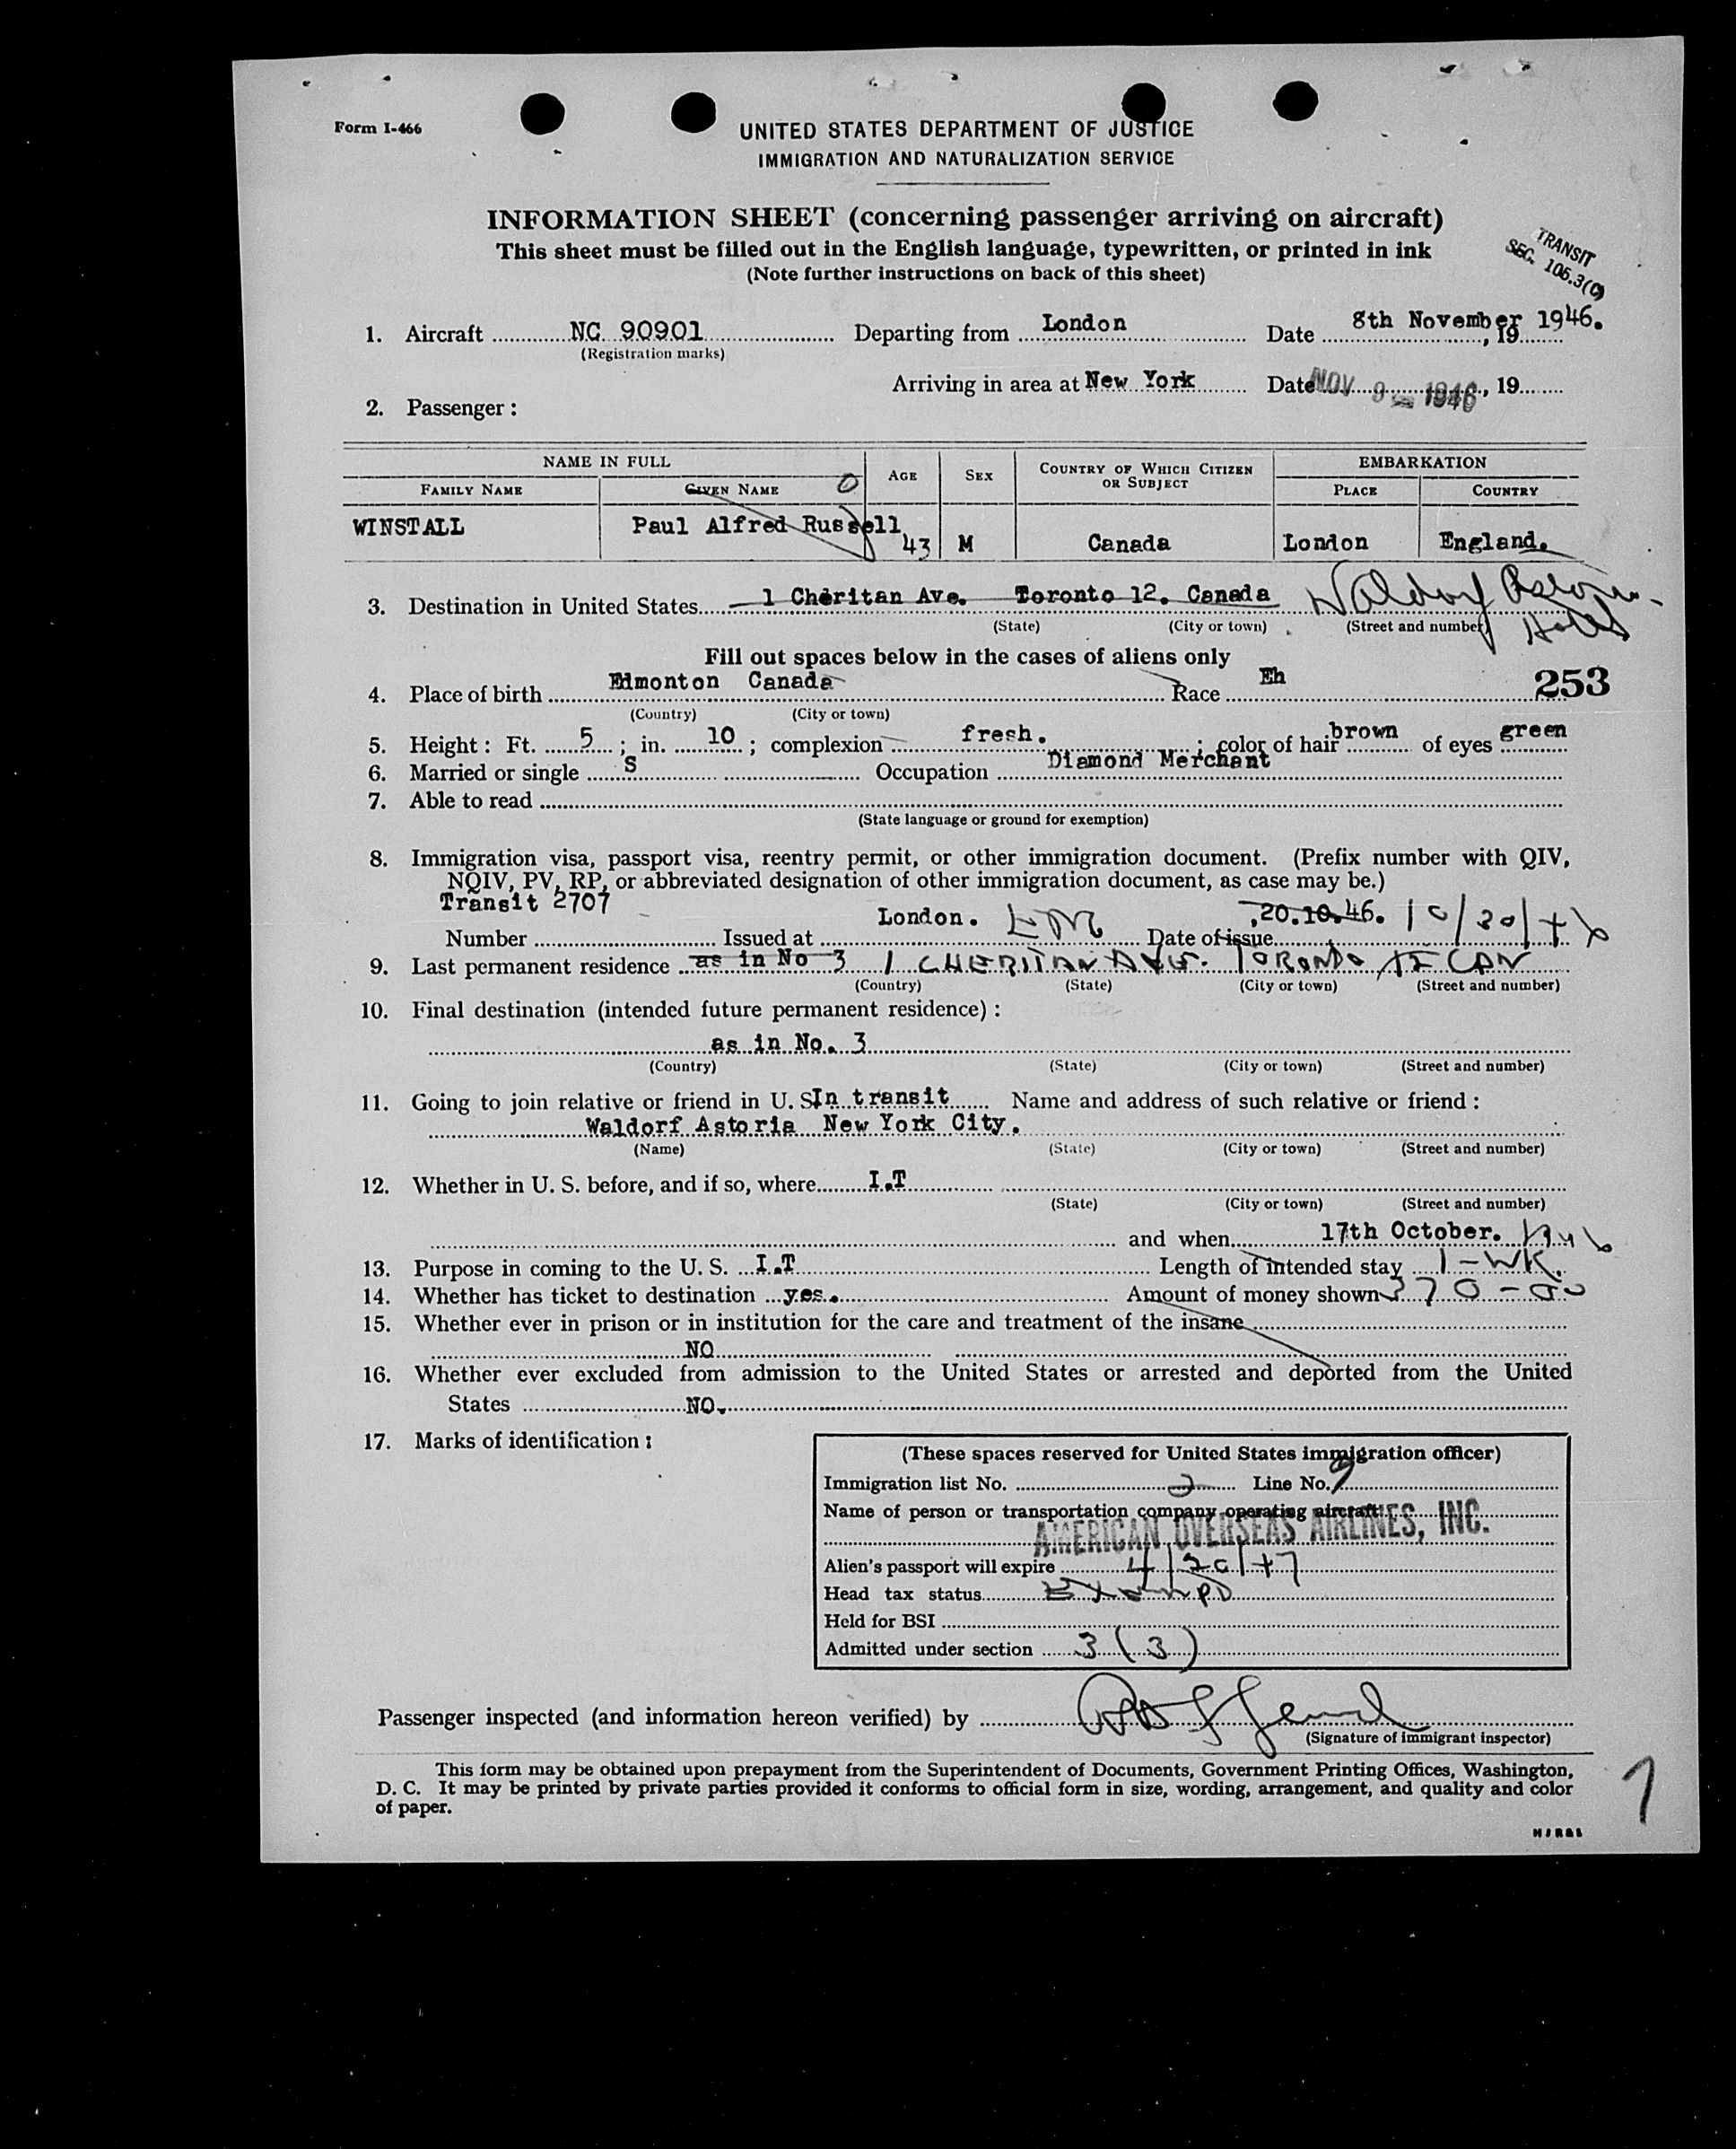 Form I-466
UNITED STATES DEPARTMENT OF JUSTICE
IMMIGRATION AND NATURALIZATION SERVICE
INFORMATION SHEET (concerning passenger arriving on aircraft)
This sheet must be filled out in the English language, typewritten, or printed in ink
(Note further instructions on back of this sheet)
TRANSIT
SEC. 106.3(C)
1. Aircraft NC 90901 Departing from London Date 8th November 1946. , 19
(Registration marks)
Arriving in area at New York Date NOV 9 - 1946, 19
2. Passenger :
NAME IN FULL AGE SEX COUNTRY OF WHICH CITIZEN OR SUBJECT EMBARKATION
FAMILY NAME GIVEN NAME PLACE COUNTRY
WINSTALL Paul Alfred Russell 43 M Canada London England.
3. Destination in United States 1 Cheritan Ave. Toronto 12. Canada Waldorf Astoria Hotel
(State) (City or town) (Street and number)
Fill out spaces below in the cases of aliens only
4. Place of birth Edmonton Canada Race Eh
253
(Country) (City or town)
5. Height : Ft. 5 ; in. 10 ; complexion fresh. ; color of hair brown of eyes green
6. Married or single S Occupation Diamond Merchant
7. Able to read
(State language or ground for exemption)
8. Immigration visa, passport visa, reentry permit, or other immigration document. (Prefix number with QIV,
NQIV, PV, RP, or abbreviated designation of other immigration document, as case may be.)
Transit 2707
Number Issued at London. Date of issue 20.10.46. 10/30/46
9. Last permanent residence as in No 3 1 CHERITAN AVE. TORONTO 12 CAN
(Country) (State) (City or town) (Street and number)
10. Final destination (intended future permanent residence) :
as in No. 3
(Country) (State) (City or town) (Street and number)
11. Going to join relative or friend in U. S. In transit Name and address of such relative or friend :
Waldorf Astoria New York City.
(Name) (State) (City or town) (Street and number)
12. Whether in U. S. before, and if so, where I.T
(State) (City or town) (Street and number)
and when 17th October. 1946
13. Purpose in coming to the U. S. I.T Length of intended stay 1-WK.
14. Whether has ticket to destination yes. Amount of money shown 370-00
15. Whether ever in prison or in institution for the care and treatment of the insane
NO
16. Whether ever excluded from admission to the United States or arrested and deported from the United
States NO.
17. Marks of identification :
(These spaces reserved for United States immigration officer)
Immigration list No. 2 Line No. 9
Name of person or transportation company operating aircraft
AMERICAN OVERSEAS AIRLINES, INC.
Alien's passport will expire 4/20/47
Head tax status
Held for BSI
Admitted under section 3 (3)
Passenger inspected (and information hereon verified) by
(Signature of immigrant inspector)
This form may be obtained upon prepayment from the Superintendent of Documents, Government Printing Offices, Washington,
D. C. It may be printed by private parties provided it conforms to official form in size, wording, arrangement, and quality and color
of paper.